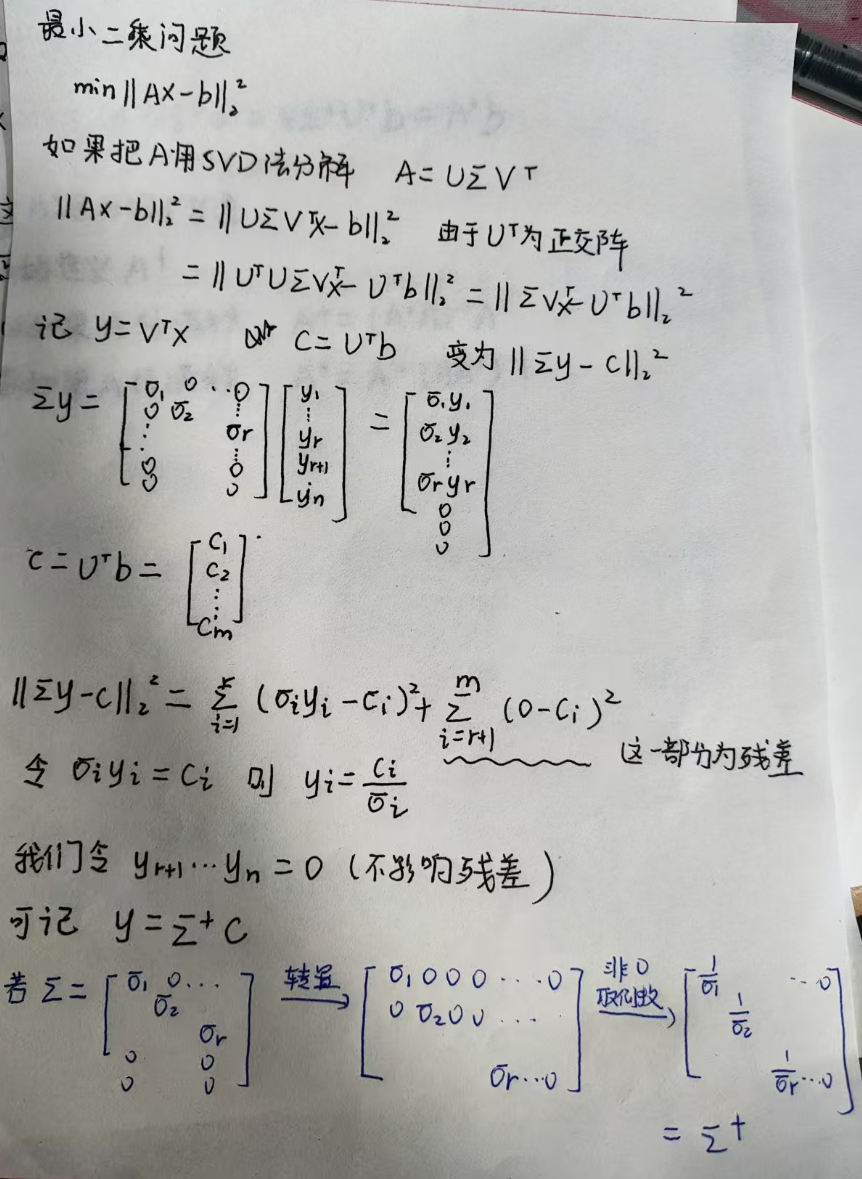 最小二乘问题
min||Ax-b||₂²
如果把A用SVD法分解 A=UΣVᵀ
||Ax-b||₂² = ||UΣVᵀx-b||₂² 由于Uᵀ为正交阵
= ||UᵀUΣVᵀx-Uᵀb||₂² = ||ΣVᵀx-Uᵀb||₂²
记 y=Vᵀx C=Uᵀb 变为 ||Σy-C||₂²
Σy = [σ₁ 0 ⋯ 0; 0 σ₂ ⋮; ⋮ σr; 0 ⋮ 0; 0 0] [y₁; ⋮; yr; yr+1; yn] = [σ₁y₁; σ₂y₂; ⋮; σryr; 0; 0; 0]
C=Uᵀb= [C₁; C₂; ⋮; Cm]
||Σy-C||₂² = Σ_{i=1}^{r} (σᵢyᵢ-Cᵢ)² + Σ_{i=r+1}^{m} (0-Cᵢ)²
这一部分为残差
令 σᵢyᵢ=Cᵢ 则 yᵢ=Cᵢ/σᵢ
我们令 yr+1⋯yn=0 (不影响残差)
可记 y=Σ⁺C
若 Σ= [σ₁ 0 ⋯; σ₂; σr; 0 0; 0 0] 转置→ [σ₁ 0 0 0 ⋯ 0; 0 σ₂ 0 0 ⋯; σr ⋯ 0] 非0取倒数→ [1/σ₁ ⋯ 0; 1/σ₂; 1/σr ⋯ 0]
= Σ⁺